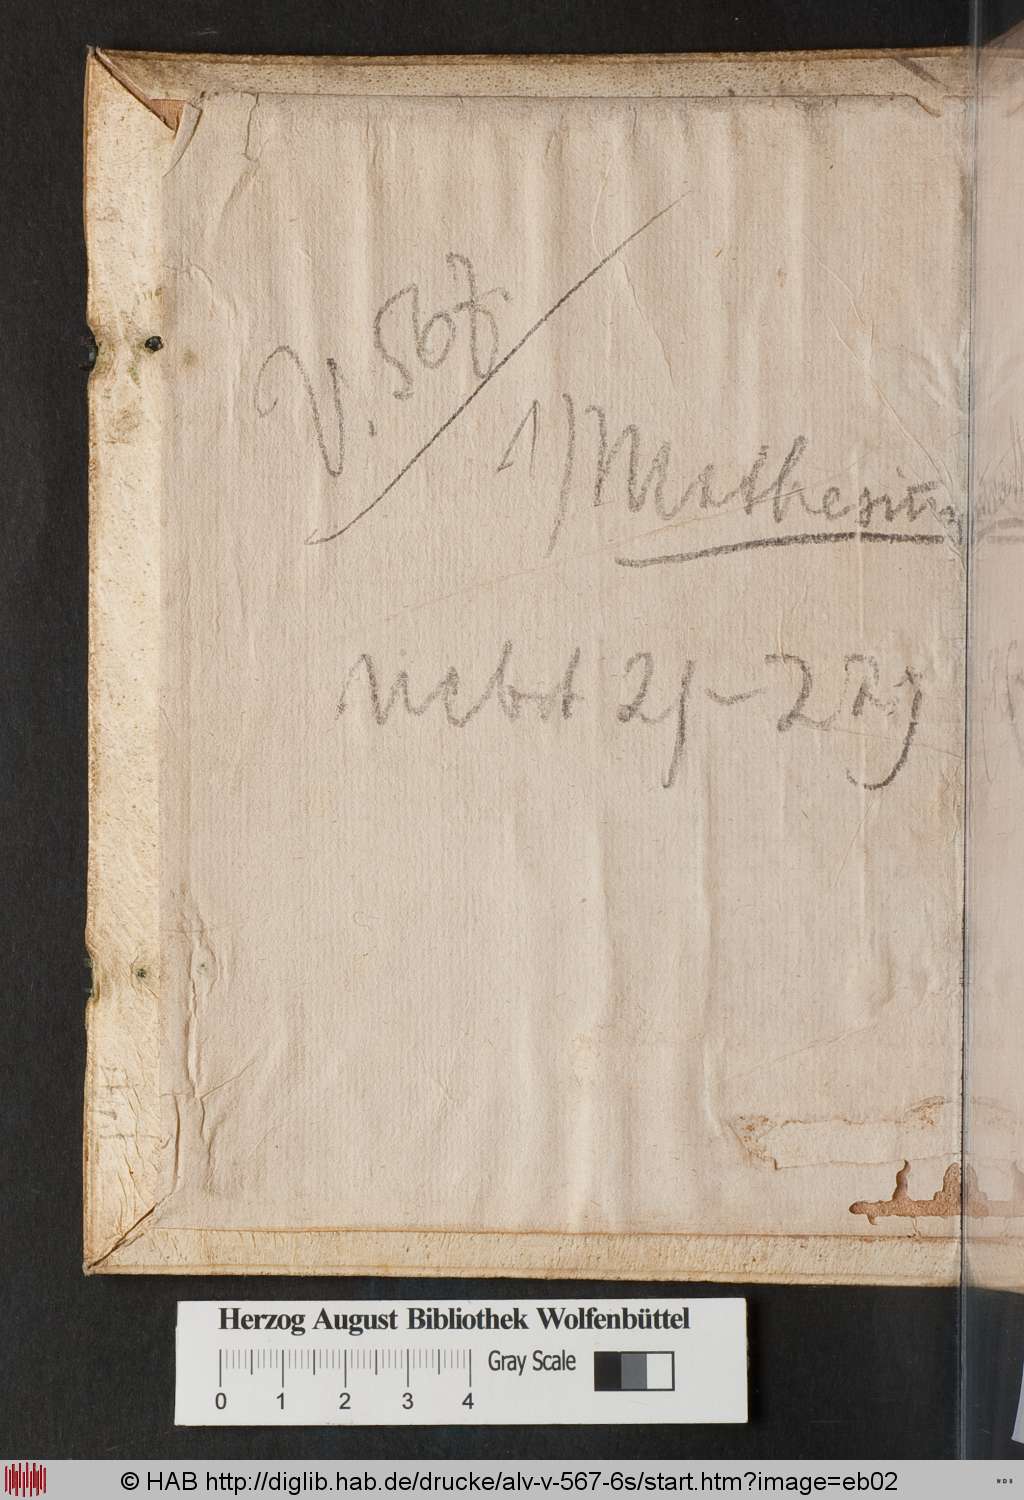 V. 567
1) Mathesius
nebst 2)-27)
Herzog August Bibliothek Wolfenbüttel
Gray Scale
0 1 2 3 4
© HAB http://diglib.hab.de/drucke/alv-v-567-6s/start.htm?image=eb02